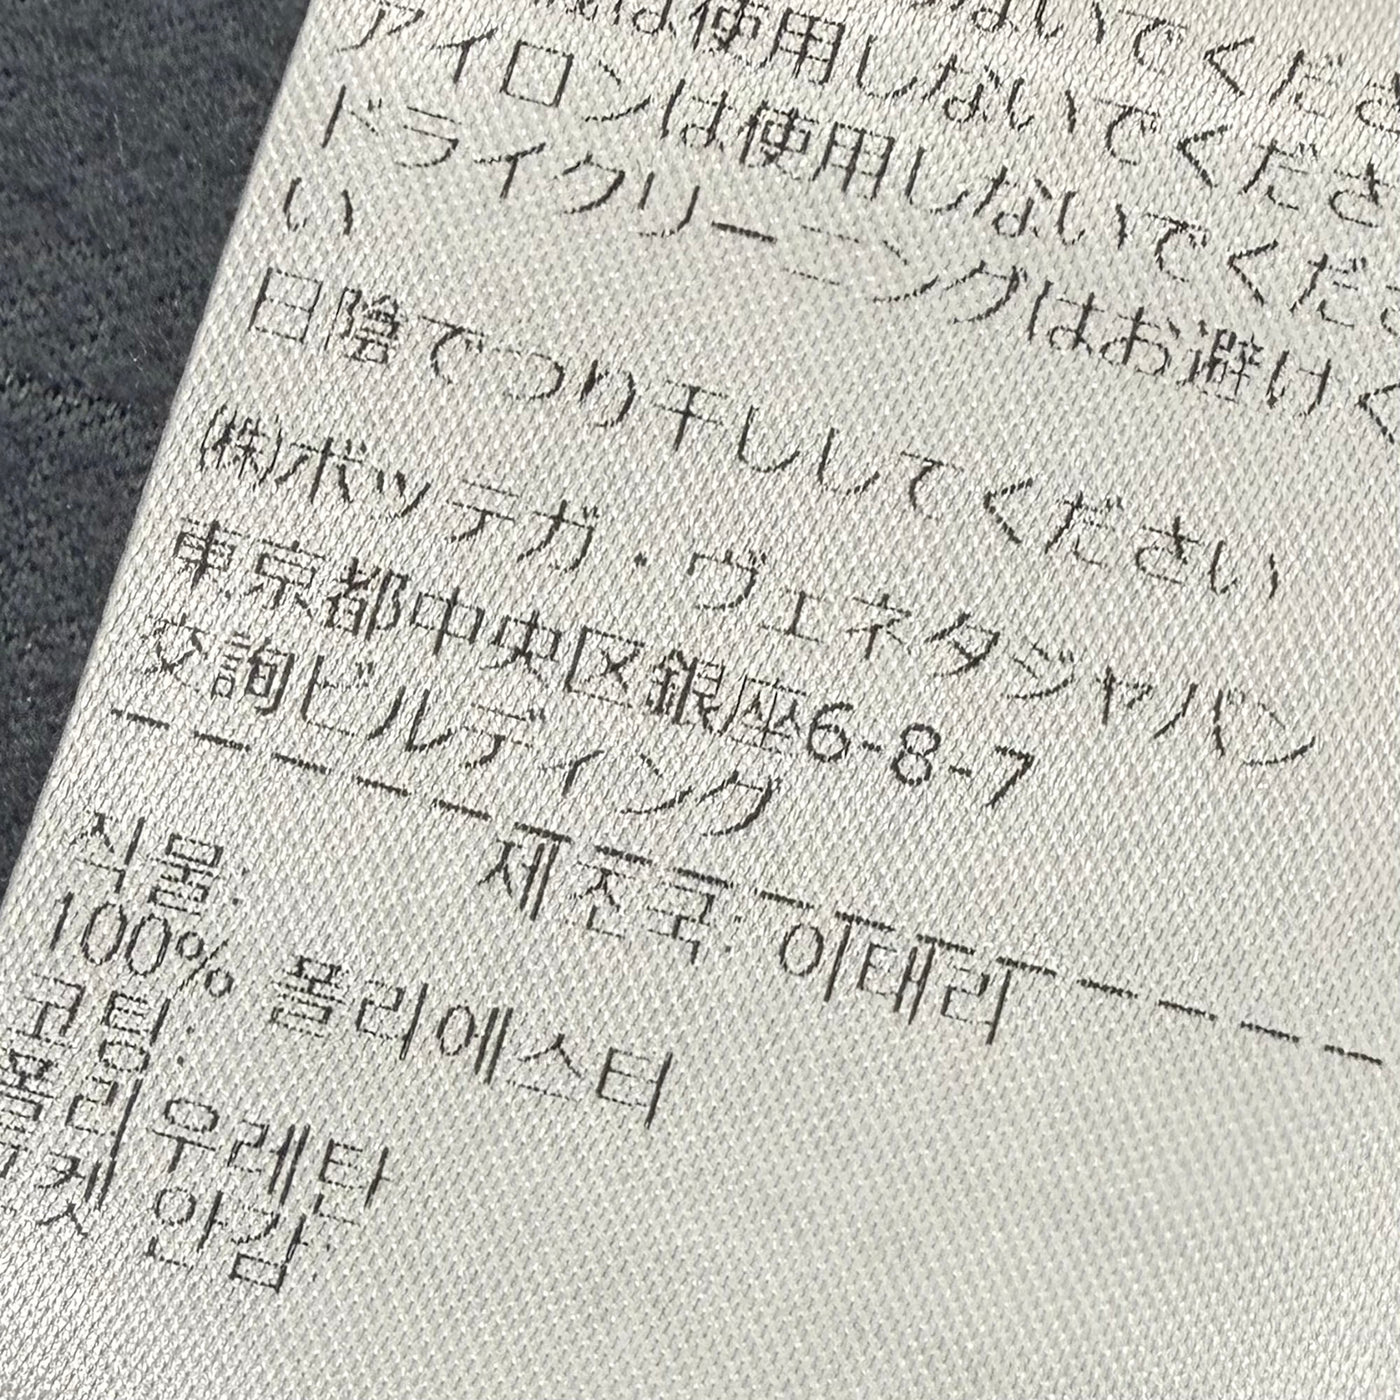 ないでくださ
は使用しないでくださ
アイロンは使用しないでくださ
ドライクリーニングはお避けく
い
日陰でつり干ししてください
(株)ボッテガ・ヴェネタジャパン
東京都中央区銀座6-8-7
交詢ビルディング
제조국: 이태리
직물:
100% 폴리에스터
코팅:
폴리 우레탄
켓 안감: